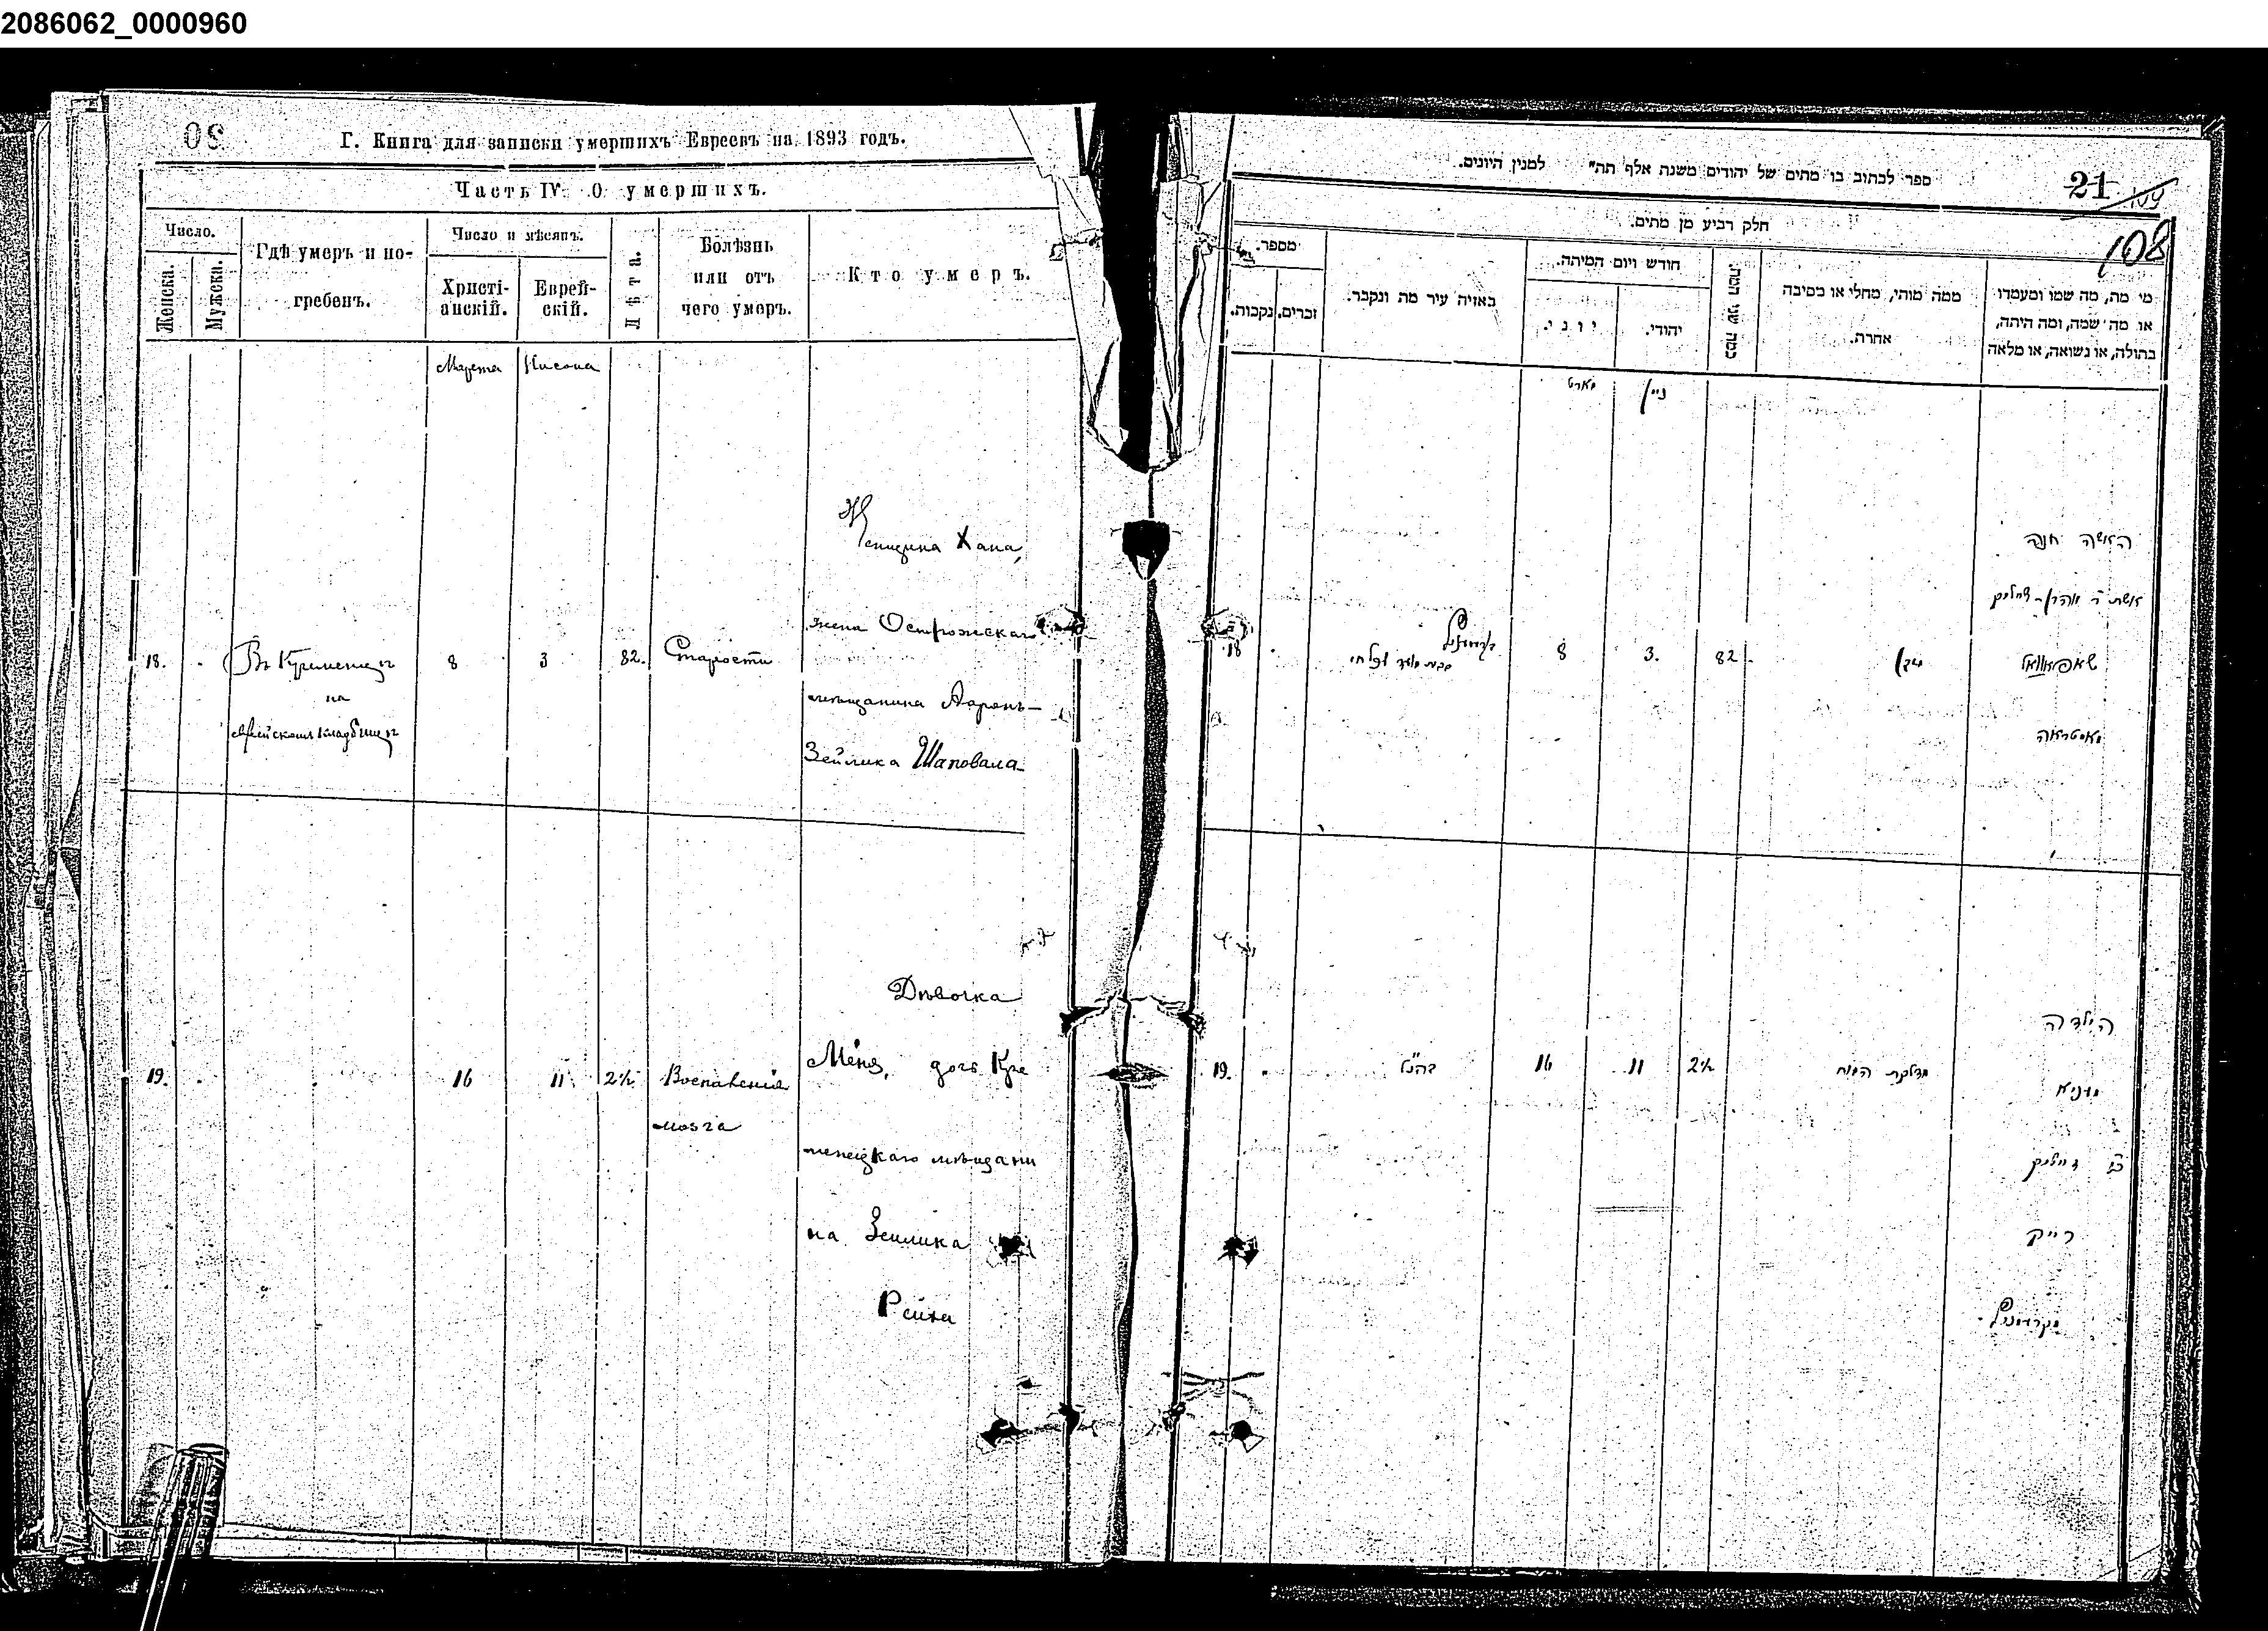 2086062_0000960
Г. Книга для записки умершихъ Евреевъ на 1893 годъ.
Часть IV. О умершихъ.
Число.
Женска.
Мужска.
Гдѣ умеръ и по-
гребенъ.
Число и мѣсяцъ.
Христі-
анскій.
Еврей-
скій.
Лѣта.
Болѣзнь
или отъ
чего умеръ.
Кто умеръ.
Марта
Нисона
18.
Въ Кременцѣ
на
еврейскомъ кладбищѣ
8
3
82.
Старости
Женщина Хана,
жена Острожскаго
мѣщанина Ааронъ-
Зейлика Шаповала
19.
16
11
2½
Воспаленія
мозга
Дѣвочка
Меня, дочь Кре
менецкаго мѣщани
на Зеилика
Рейха
ספר לכתוב בו מתים של יהודים משנת אלף תת" למנין היונים.
21
108
חלק רביע מן מתים.
מספר.
נקבות.
זכרים.
באיזה עיר מת ונקבר.
חודש ויום המיתה.
יוני.
יהודי.
כמה שני המת.
ממה מוהי, מחלי או בסיבה
אחרת.
מי מת, מה שמו ומעמדו
או מה שמה, ומה היתה,
בתולה, או נשואה, או מלאה
מארט
ניסן
18
8
3.
82
האשה חנה
אשת ר אהרן זיליק
שאפאוואל
19.
כהנ"ל
16
11
2½
מדלקת המוח
הילדה
מעניא
זייליק
רייך